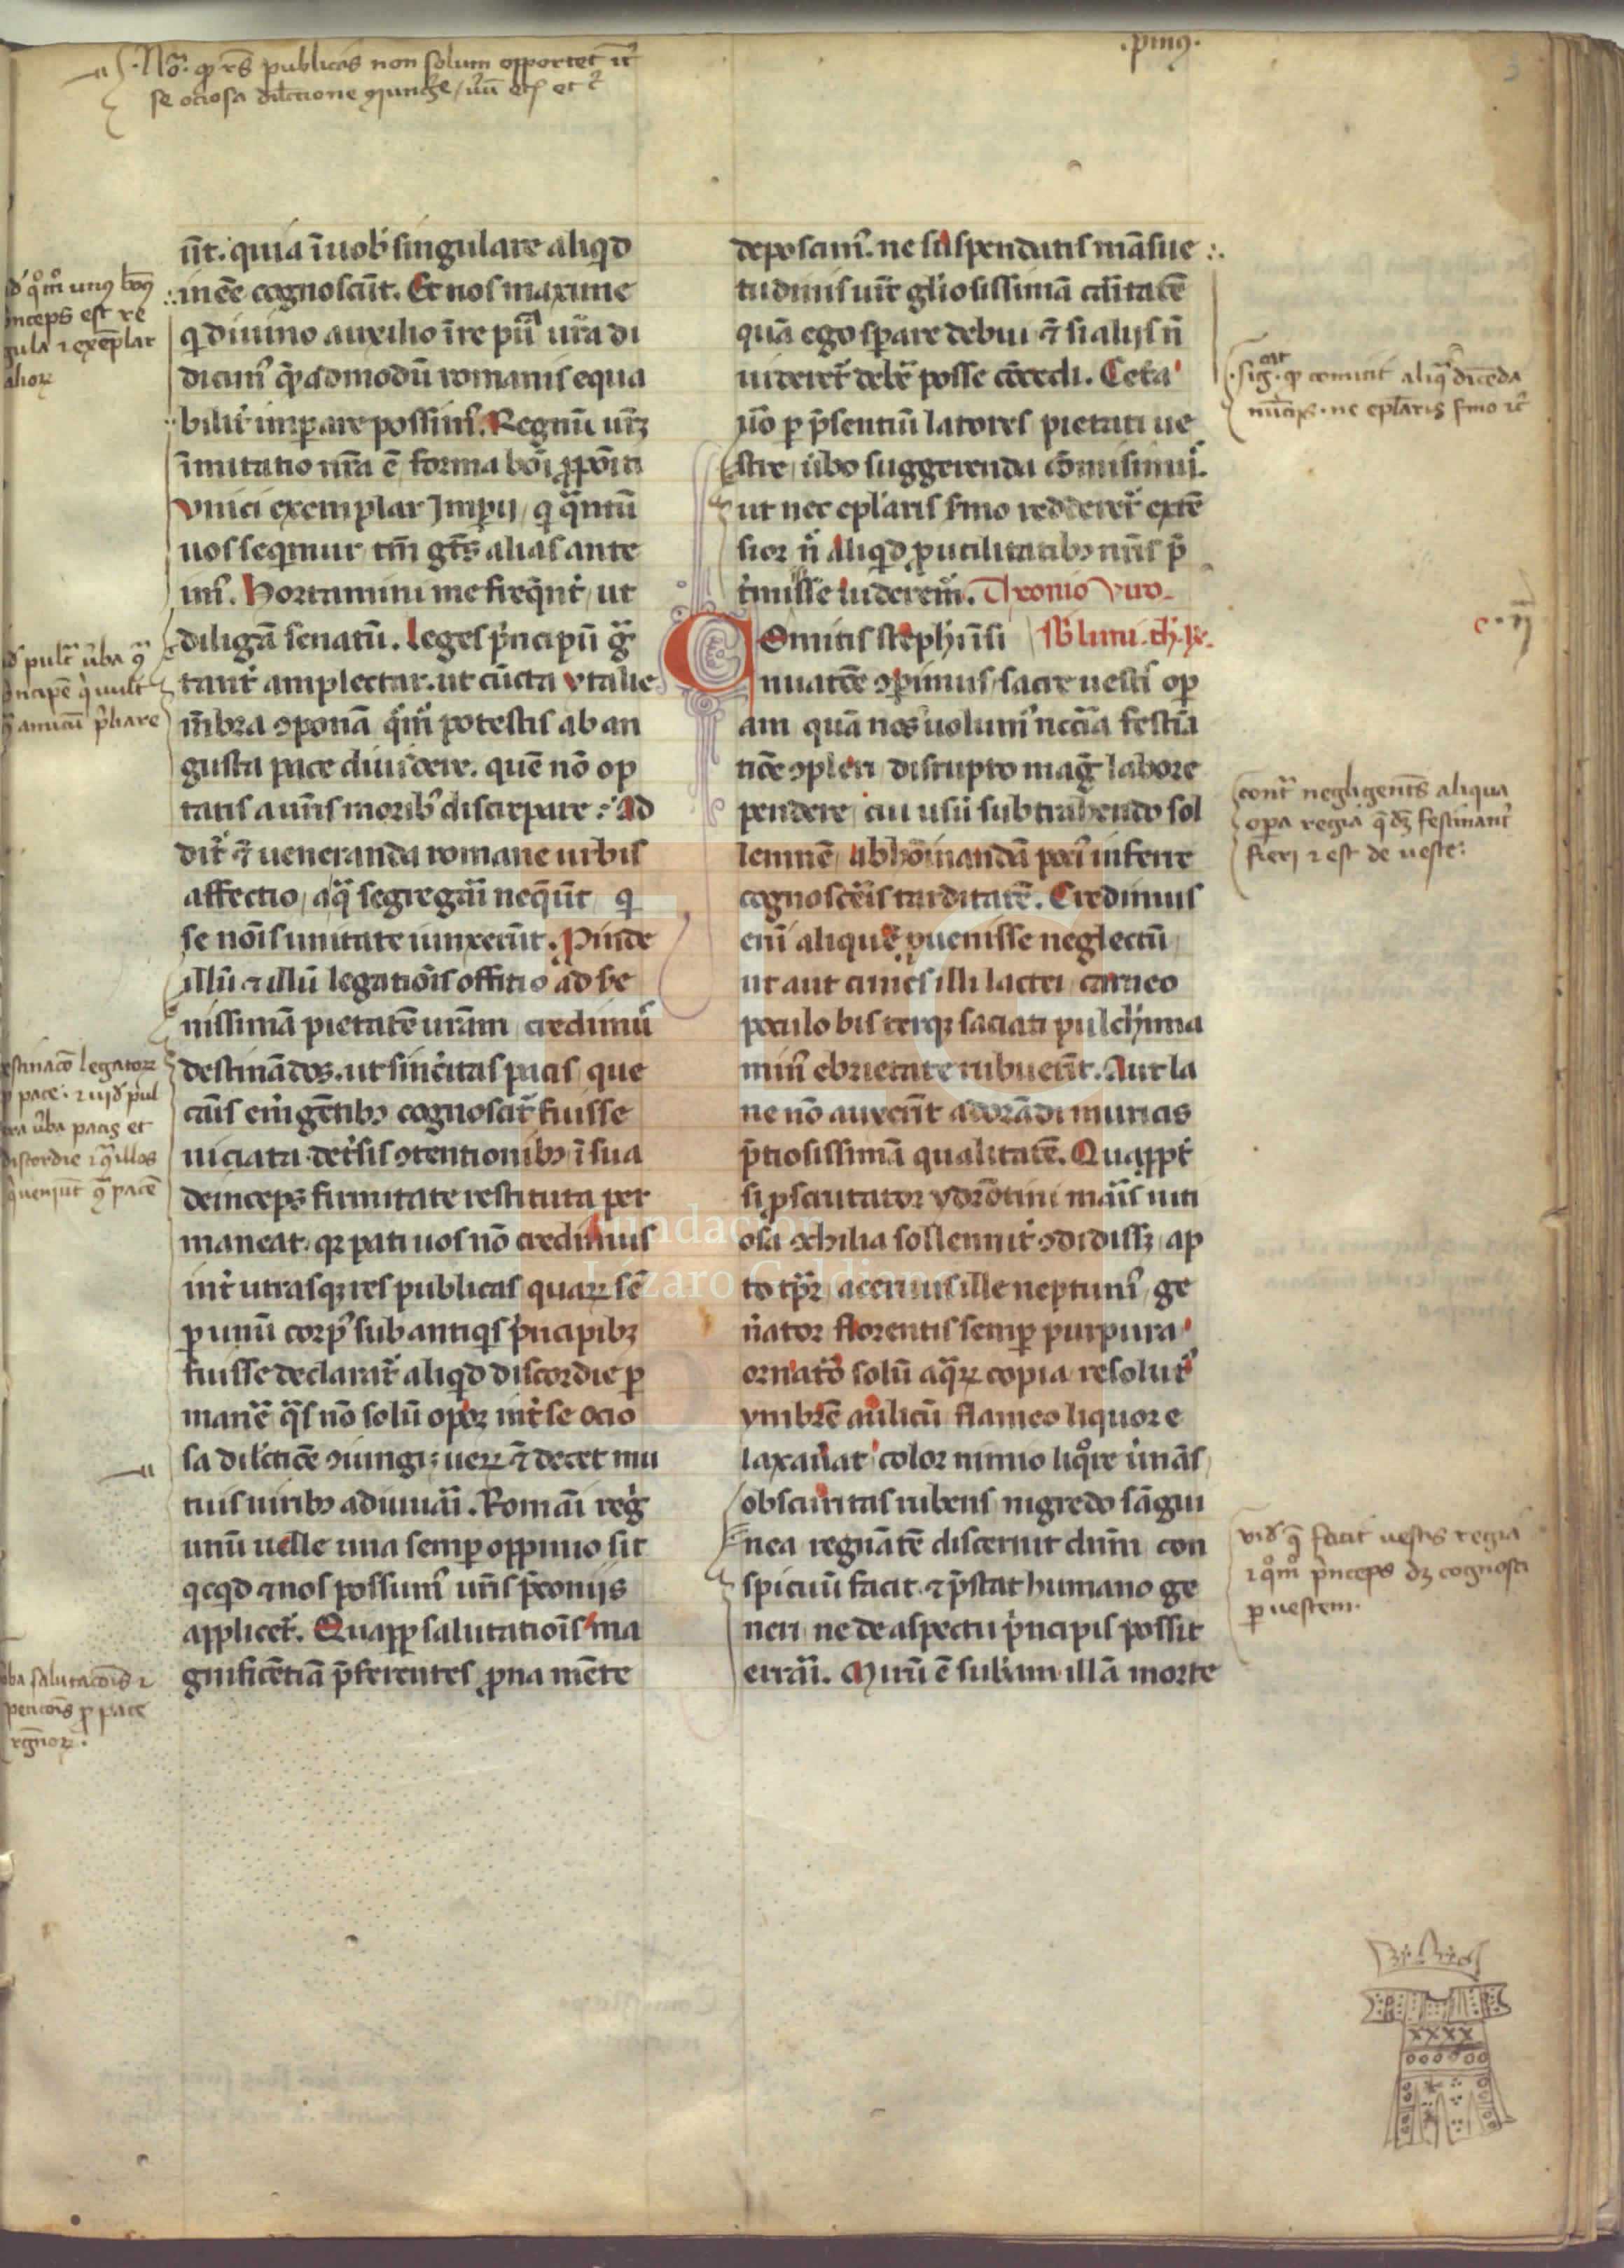 .No. qͥ rꝭ publicas non solum opportet ĩt
se ociosa dil̃ctione ꝯiungͣe / uũ etͥ et c̃
.pmꝰ.
3
ũt. quia ĩ uob̾ singulare aliqͥd
inẽe cognoscũt. Et nos maxime
qͥ diuino auxilio ĩ re pũ ur̃a di
dicim᾽ quẽadmodũ romanis equa
bilit̾ imꝑare possim᾽. Regnũ ur̃ꝫ
ĩmitatio nr̃a ẽ forma boñ ꝓpoĩti
vnici exemplar Imꝑij / qͥ qͣntũ
uos seqͥmur tm̃ gẽtꝭ alias ante
im᾽. Hortamini me freqñt̾ / ut
diligã senatũ. leges pͥncipũ gͣ
tant̾ amplectar. ut cũcta ytalie
mẽbra ꝯponã qͦmͦ potestis ab au
gusta pace diuidere. quẽ nõ op
tatis a ur̃is morib᾽ discrepare ⁖ Ad
dit̾ ⁊ ueneranda romane urbis
affectio / aqͣ segregari neqũt qͥ
se noĩs unitate iunxerũt. Pinde
illũ ⁊ illũ legatiõis offitio ad se
nissimã pietatẽ uram credimꝰ
destinãdos. ut sincͥitas pacis que
cãis emͥgẽtibꝫ cognoscit̾ fuisse
uiciata. detͥsis ꝯtentionibꝫ ĩ sua
deinceps firmitate restituta per
maneat. qꝫ pati uos nõ credimus
int̾ utrasqꝫ res publicas quaꝝ sẽ
ꝑ unũ corpꝰ sub antiqͥs pͥncipibꝫ
fuisse declarat̾ aliqͥd discordie ꝑ
manẽ qͣs nõ solũ opoꝝ int̾ se ocio
sa dil̃ctiõe ꝯiungi: ueꝝ ⁊ decet mu
tuis uiribꝫ adiuuari. Romani regͥ
unũ uelle una semꝑ oppinio sit
qͥcqͥd ⁊ nos possum᾽ ur̃is pͣconijs
applicet̾. Quapp̱ salutatiõis ma
gnificẽtiã pͣferentes ꝓna mẽte
deposcim᾽. ne suspendatis mãsue
tudinis ur̃e gl̃iosissimã caritatẽ
quã ego sꝑare debui ⁊ si alijs ñ
uideret̾ debẽ posse cõcedi. Ceta
uͦo ꝑ pͣsentiũ latores pietati ue
stre / ubo suggerenda cõmisimuᷤ.
ut nec epl̃aris smo redderet̾ extẽ
sior ñ aliqͥd ꝓ utilitatibꝫ nr̃is pͣ
t̾misse uiderem᾽. Theonio viro
Comitis stephĩsi sublimi. th. he.
nuatẽe ꝯꝑimus / sacre uestis oꝑ
am quã nos uolum᾽ necc̃ia festiã
tiõe ꝯpleri / disrupto magͥ labore
pendere / cui usũ subtrahendo sol
lemnẽ / abhõmandã poci᾽ inferre
cognoscẽis tarditatẽ. Credimus
eni᾽ aliquẽ ꝓuenisse neglectũ
ut aut crines illi lactei carneo
poculo bis terqꝫ saciati pulcherrima
min᾽ ebrietate rubuerit. Aut la
ne nõ auxerit adorãdi muricis
pͣtiosissimã qualitatẽ. Quapp̱t̾
si ꝑscrutator ydrõtini maris uiti
osa ꝯchilia sollennit̾ ꝯdidissꝫ ap
to tp̃r / aceruus ille neptuni᾽ ge
ñator florentis semꝑ purpura
ornatͦ solũ aqͣꝝ copia resolutꝰ
ymbrẽ aulicũ flameo liquore
laxauͣat color nimio liqͦre uñãs
obscuritas rubens nigredo sãgui
nea regnãtẽ discernit dum con
spicuũ facit. ⁊ pͣstat humano ge
neri ne de aspectu pͥncipis possit
errari. Mirũ ẽ subͣam illã morte
nceps est re
gula ⁊ exẽplar
alioꝝ
estinacõ legatoꝝ
ꝑ pace. ⁊ uid̾ pul
uba pacis et
discordie ⁊ qͣ illos
uba salutacõis ⁊
peticõis ꝓ pace
regnoꝝ.
nũcijs. ne epl̃aris smo ĩt
c. ij
contͣ negligentꝭ aliqua
opͣa regia qͥ dꝫ festinant̾
fieri ⁊ est de ueste:
vid̾ qͥ facit uestis regia
⁊ qͦm pͥnceps dꝫ cognosci
ꝑ uestem.
Fundación
Lázaro Galdiano